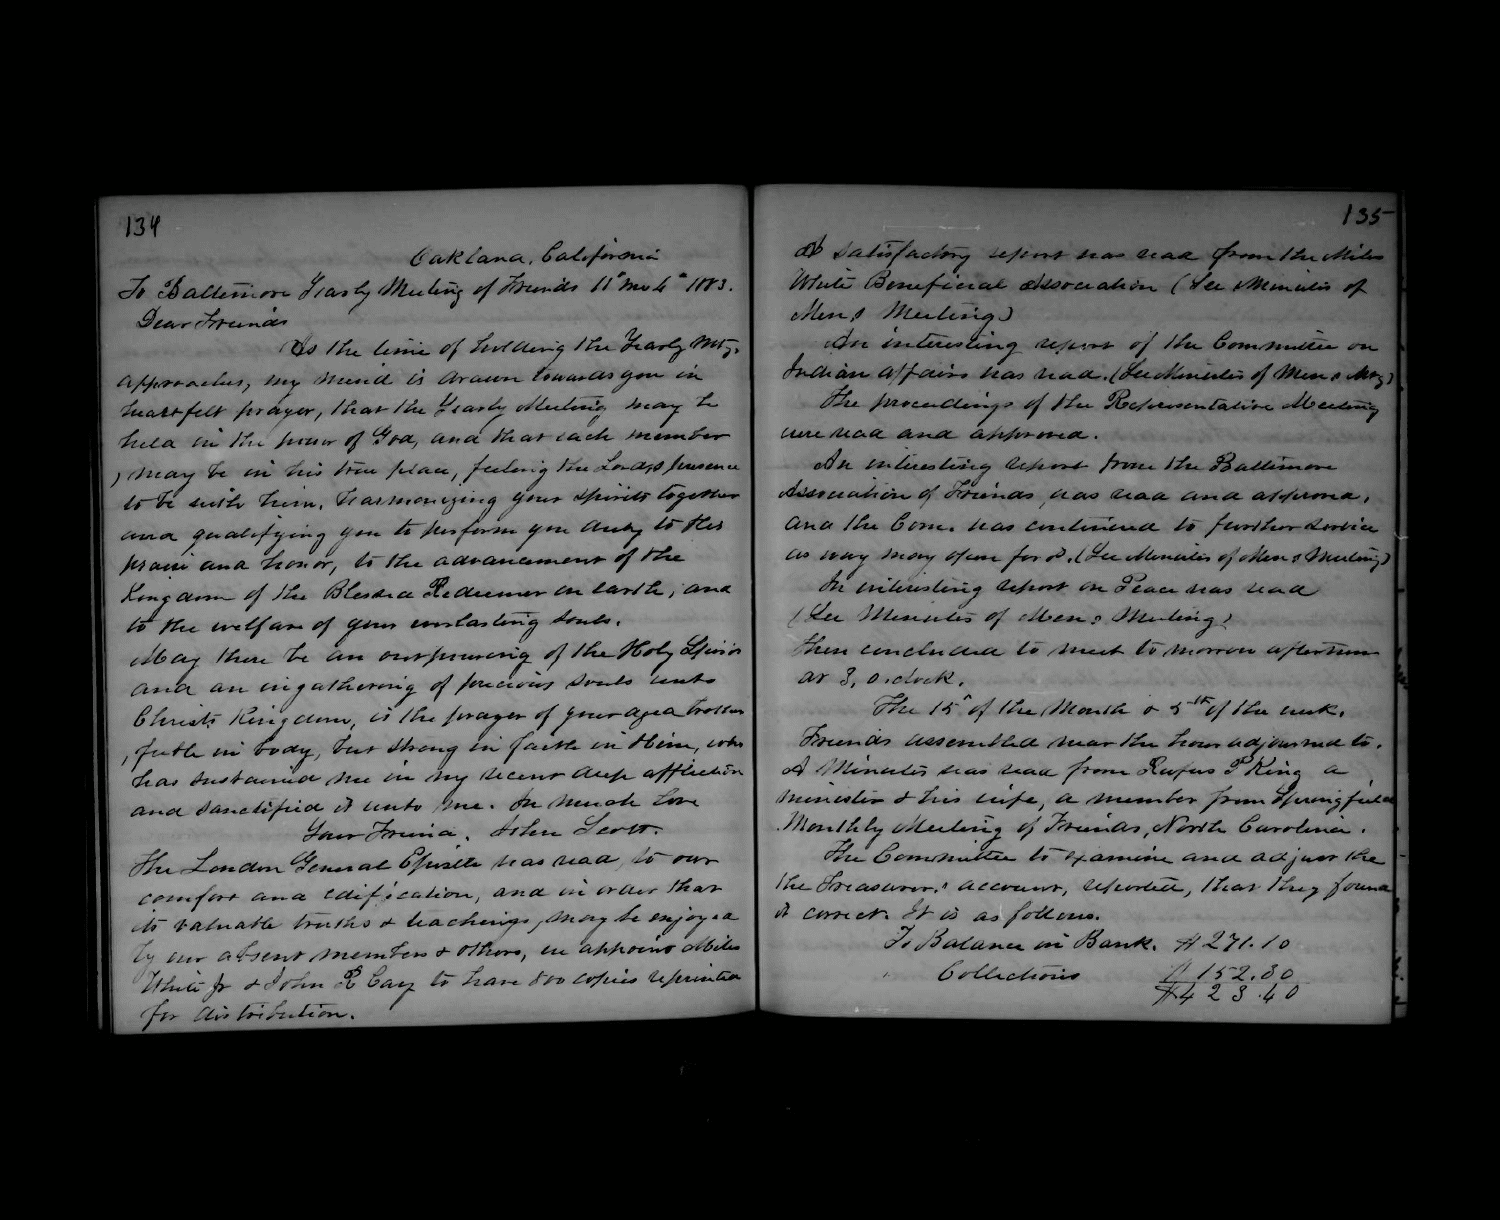 134
Oakland, California
To Baltimore Yearly Meeting of Friends 11" mo 4" 1883.
Dear Friends
As the time of holding the Yearly Mtg.
approaches, my mind is drawn towards you in
heartfelt prayer, that the Yearly Meeting may be
held in the power of God, and that each member
may be in his true place, feeling the Lord,s presence
to be with him, harmonizing your spirits together
and qualifying you to perform you duty to His
praise and honor, to the advancement of the
Kingdom of the Blessed Redeemer on Earth, and
to the welfare of your everlasting souls.
May there be an outpouring of the Holy Spirit
and an ingathering of precious souls unto
Christs Kingdom, is the prayer of your aged brother
feeble in body, but strong in faith in Him, who
has sustained me in my recent deep affliction
and sanctified it unto me. In much love
Your Friend, John Scott.
The London General Epistle was read, to our
comfort and edification, and in order that
its valuable truths & teachings, may be enjoyed
by our absent members & others, we appoint Miles
White Jr & John R Cary to have 800 copies reprinted
for distribution.
135
A satisfactory report was read from the Miles
White Beneficial Association (See Minutes of
Men,s Meeting)
An interesting report of the Committee on
Indian affairs was read. (See Minutes of Men,s Mtg)
The proceedings of the Representative Meeting
were read and approved.
An interesting report from the Baltimore
Association of Friends was read and approved,
and the Com. was continued to further service
as way may open for it. (See Minutes of Men,s Meeting)
An interesting report on Peace was read
(See Minutes of Men,s Meeting)
Then concluded to meet to morrow afternoon
at 3, o'clock.
The 15" of the Month & 5th of the week.
Friends assembled near the hour adjourned to.
A Minute was read from Rufus P King a
minister & his wife, a member from Springfield
Monthly Meeting of Friends, North Carolina.
The Committee to examine and adjust the
the Treasurer,s account, reported, that they found
it correct. It is as follows.
To Balance in Bank. $ 271.10
" Collections $ 152.30
$ 423.40